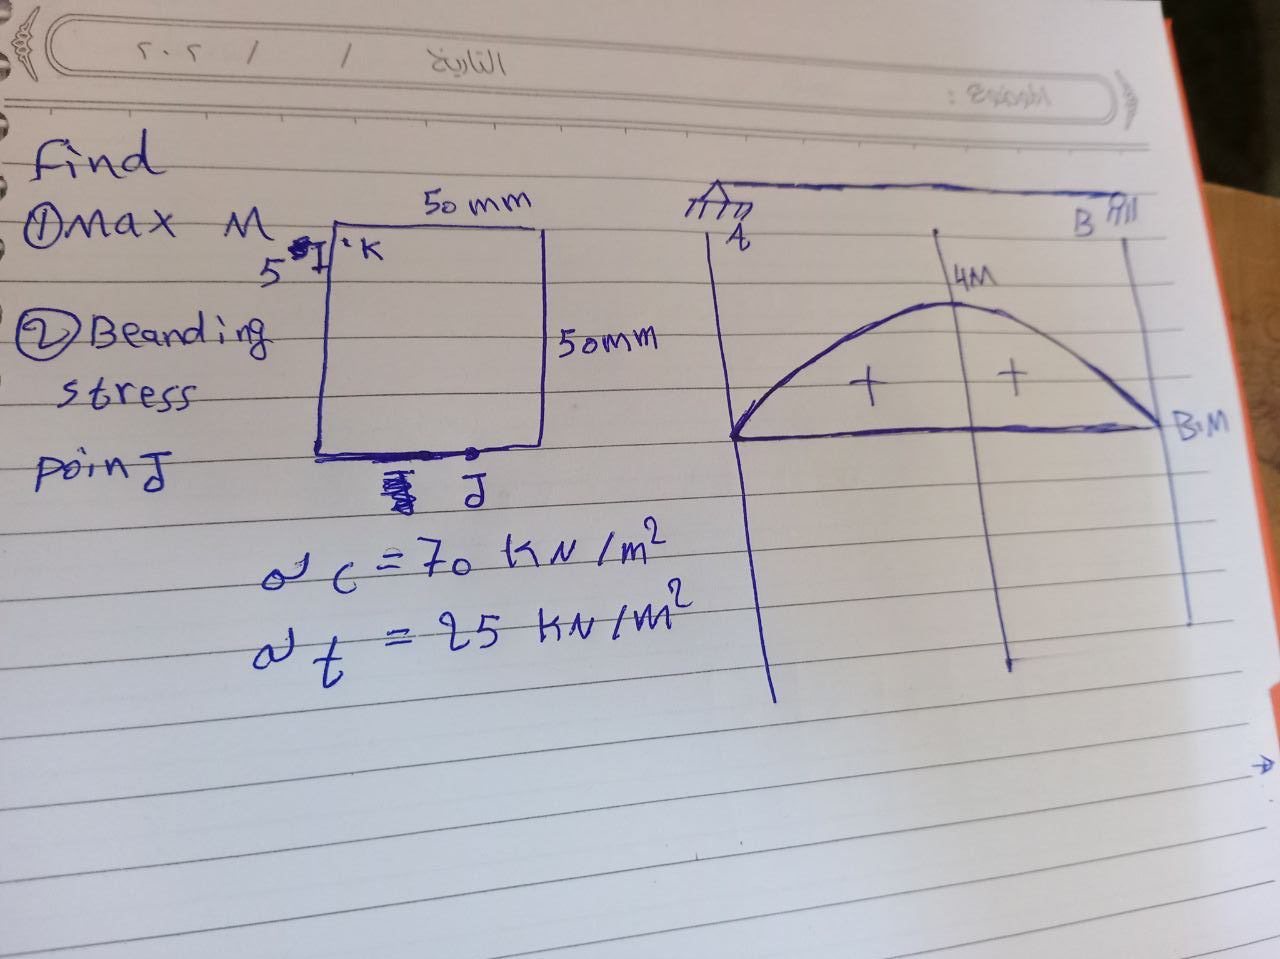 ٢٠٢ / / التاريخ
الموضوع :
Find
① Max M
② Beanding
stress
Poin J
50 mm
5 I
. K
50mm
J
σ c = 70 KN/m²
σ t = 25 KN/m²
A
B
4M
+ +
B.M